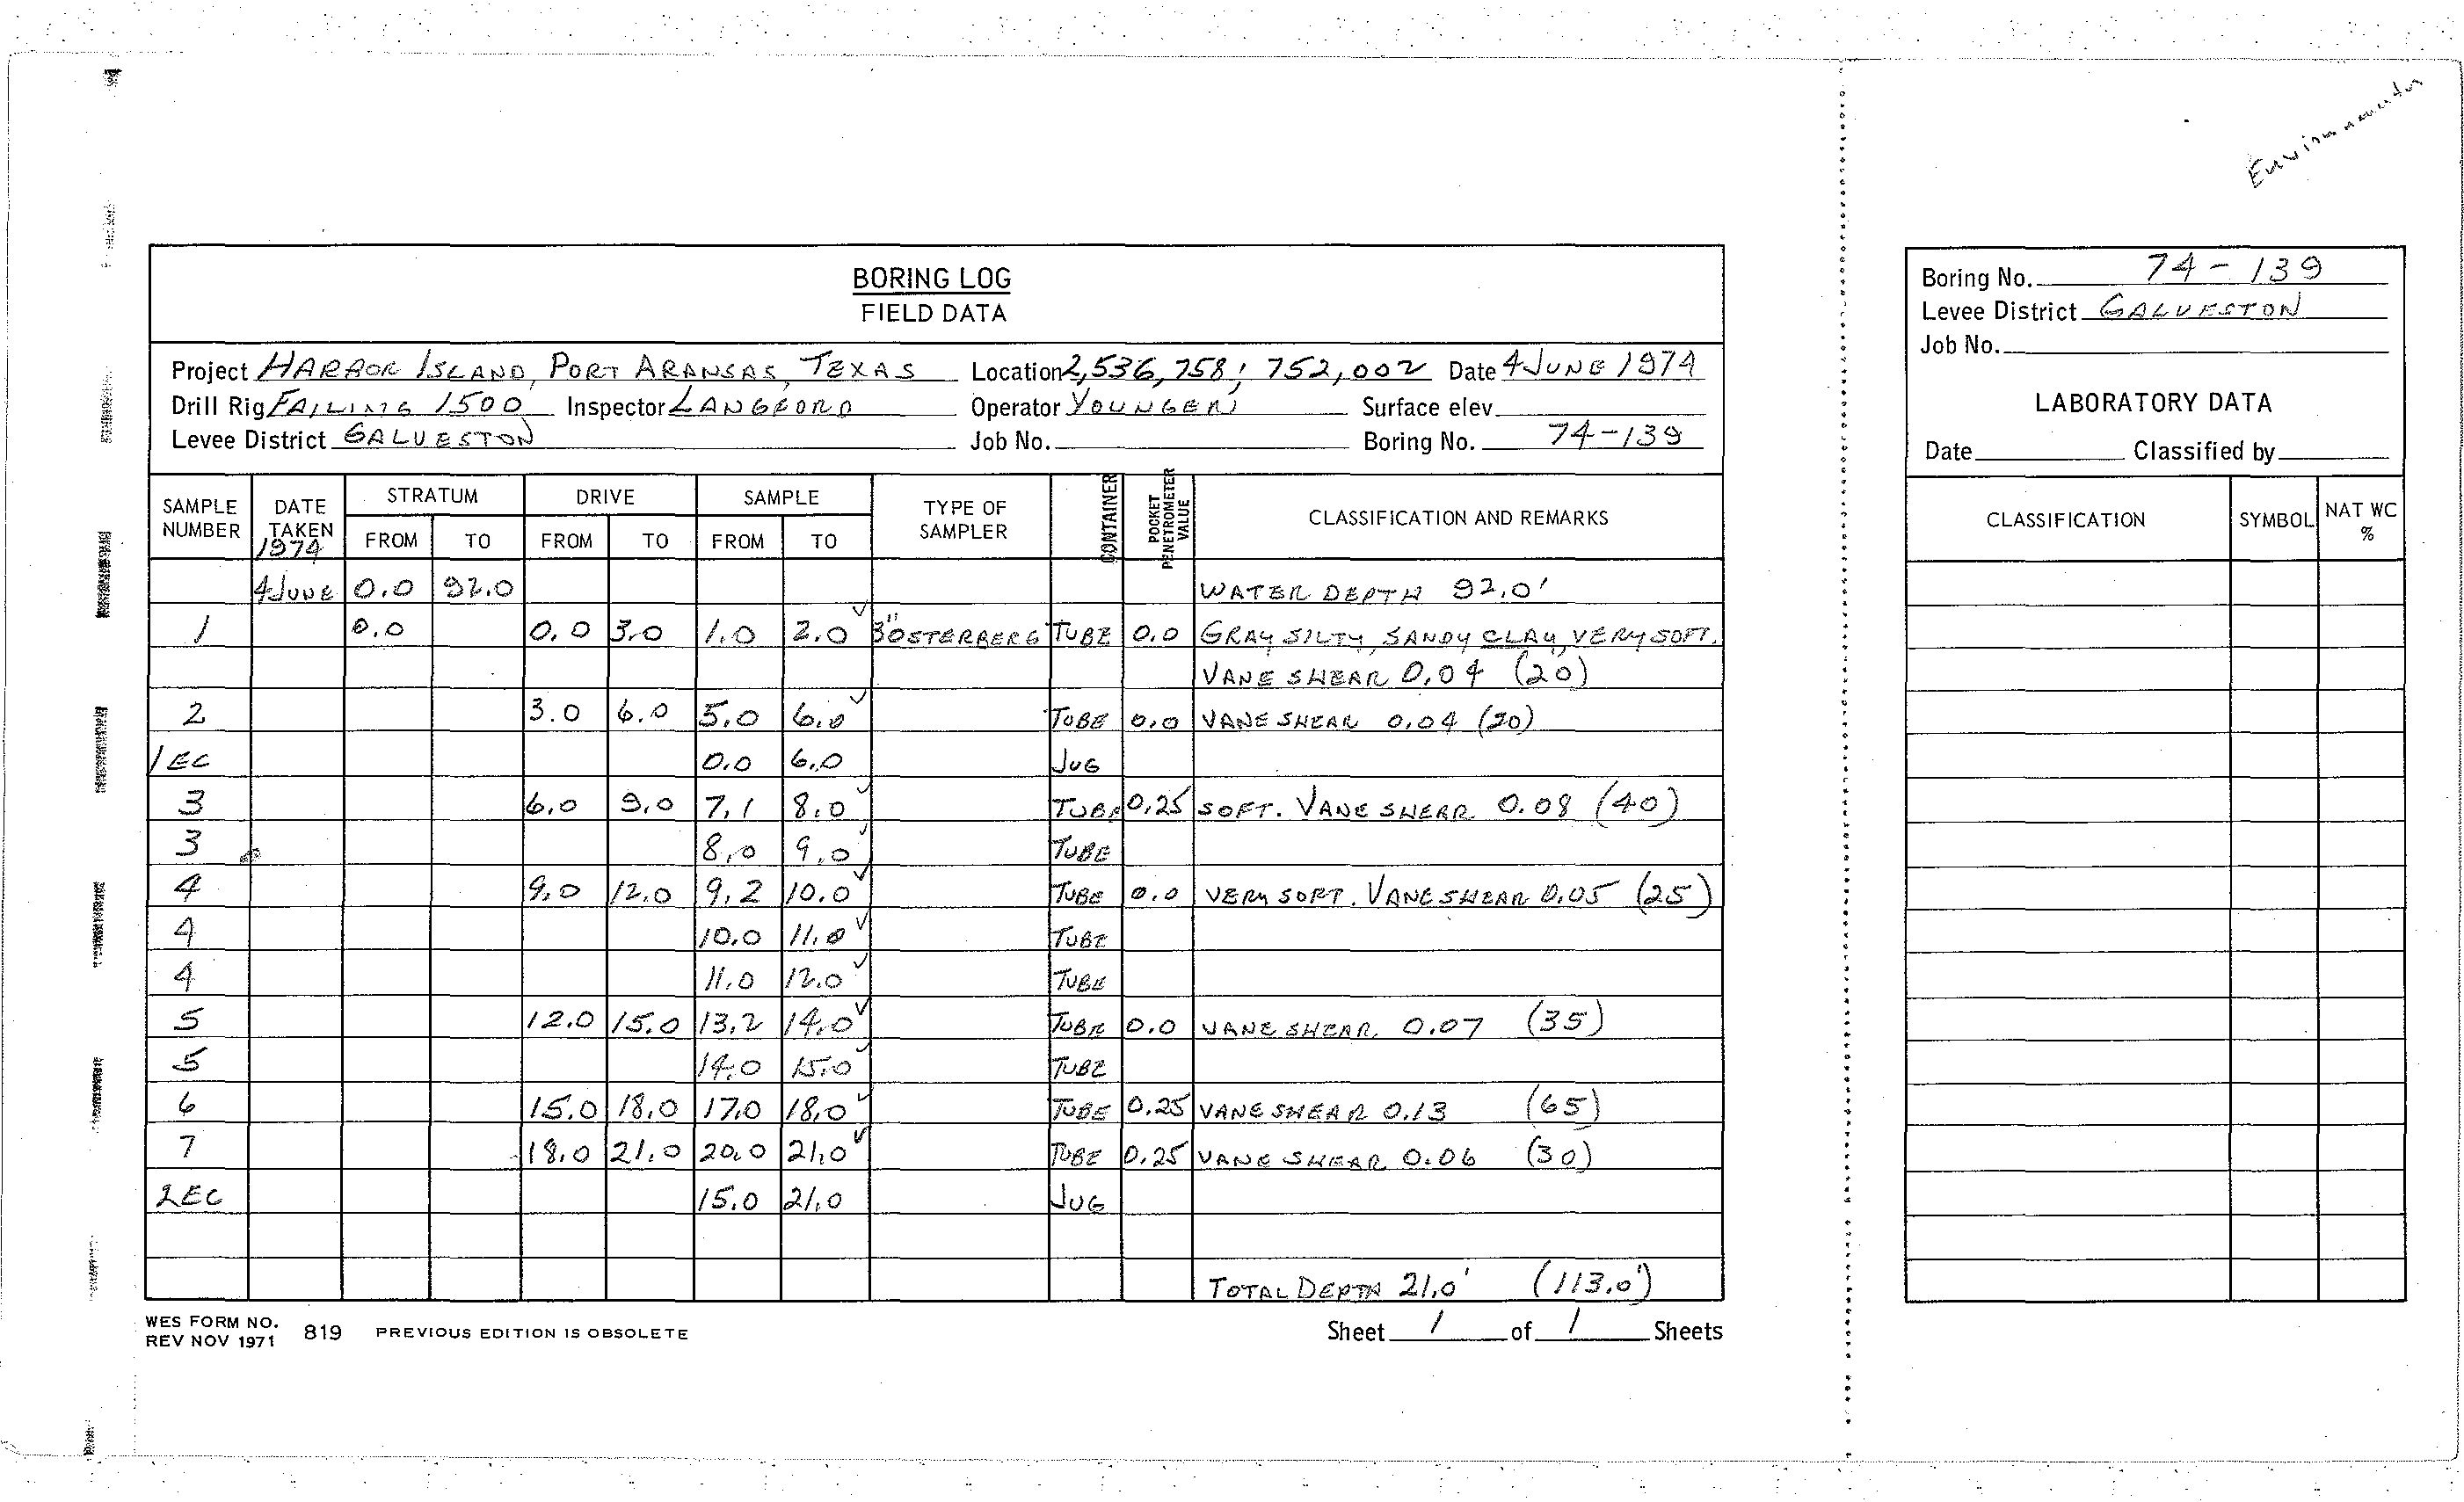 Environmental
BORING LOG
FIELD DATA
Project HARBOR ISLAND, PORT ARANSAS, TEXAS Location 2,536,758; 752,002 Date 4 JUNE 1974
Drill Rig FAILING 1500 Inspector LANGFORD Operator YOUNGER Surface elev.
Levee District GALVESTON Job No. Boring No. 74-139
SAMPLE NUMBER DATE TAKEN 1974 STRATUM FROM TO DRIVE FROM TO SAMPLE FROM TO TYPE OF SAMPLER CONTAINER POCKET PENETROMETER VALUE CLASSIFICATION AND REMARKS
4 JUNE 0.0 92.0 WATER DEPTH 92.0'
1 0.0 0.0 3.0 1.0 2.0 ✓ 3" OSTERBERG TUBE 0.0 GRAY SILTY, SANDY CLAY, VERY SOFT.
VANE SHEAR 0.04 (20)
2 3.0 6.0 5.0 6.0 ✓ TUBE 0.0 VANE SHEAR 0.04 (20)
1EC 0.0 6.0 JUG
3 6.0 9.0 7.1 8.0 ✓ TUBE 0.25 SOFT. VANE SHEAR 0.08 (40)
3 8.0 9.0 ✓ TUBE
4 9.0 12.0 9.2 10.0 ✓ TUBE 0.0 VERY SOFT. VANE SHEAR 0.05 (25)
4 10.0 11.0 ✓ TUBE
4 11.0 12.0 ✓ TUBE
5 12.0 15.0 13.2 14.0 ✓ TUBE 0.0 VANE SHEAR. 0.07 (35)
5 14.0 15.0 ✓ TUBE
6 15.0 18.0 17.0 18.0 ✓ TUBE 0.25 VANE SHEAR 0.13 (65)
7 18.0 21.0 20.0 21.0 ✓ TUBE 0.25 VANE SHEAR 0.06 (30)
2EC 15.0 21.0 JUG
TOTAL DEPTH 21.0' (113.0')
WES FORM NO.
REV NOV 1971 819 PREVIOUS EDITION IS OBSOLETE Sheet 1 of 1 Sheets
Boring No. 74-139
Levee District GALVESTON
Job No.
LABORATORY DATA
Date Classified by
CLASSIFICATION SYMBOL NAT WC %